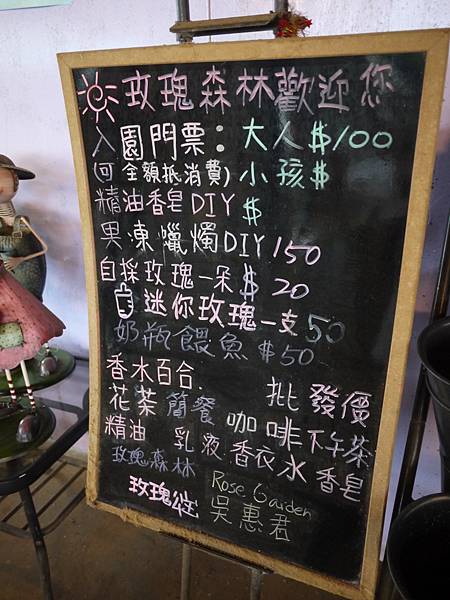 玫瑰森林歡迎您
入園門票：大人$100
(可全額抵消費)小孩$
精油香皂DIY $
果凍蠟燭DIY 150
自採玫瑰一朵$20
迷你玫瑰一支50
奶瓶餵魚 $50
香水百合. 批發價
花茶 簡餐 咖啡 下午茶
精油 乳液 香衣水 香皂
玫瑰森林 Rose Garden
玫瑰公主 吳惠君